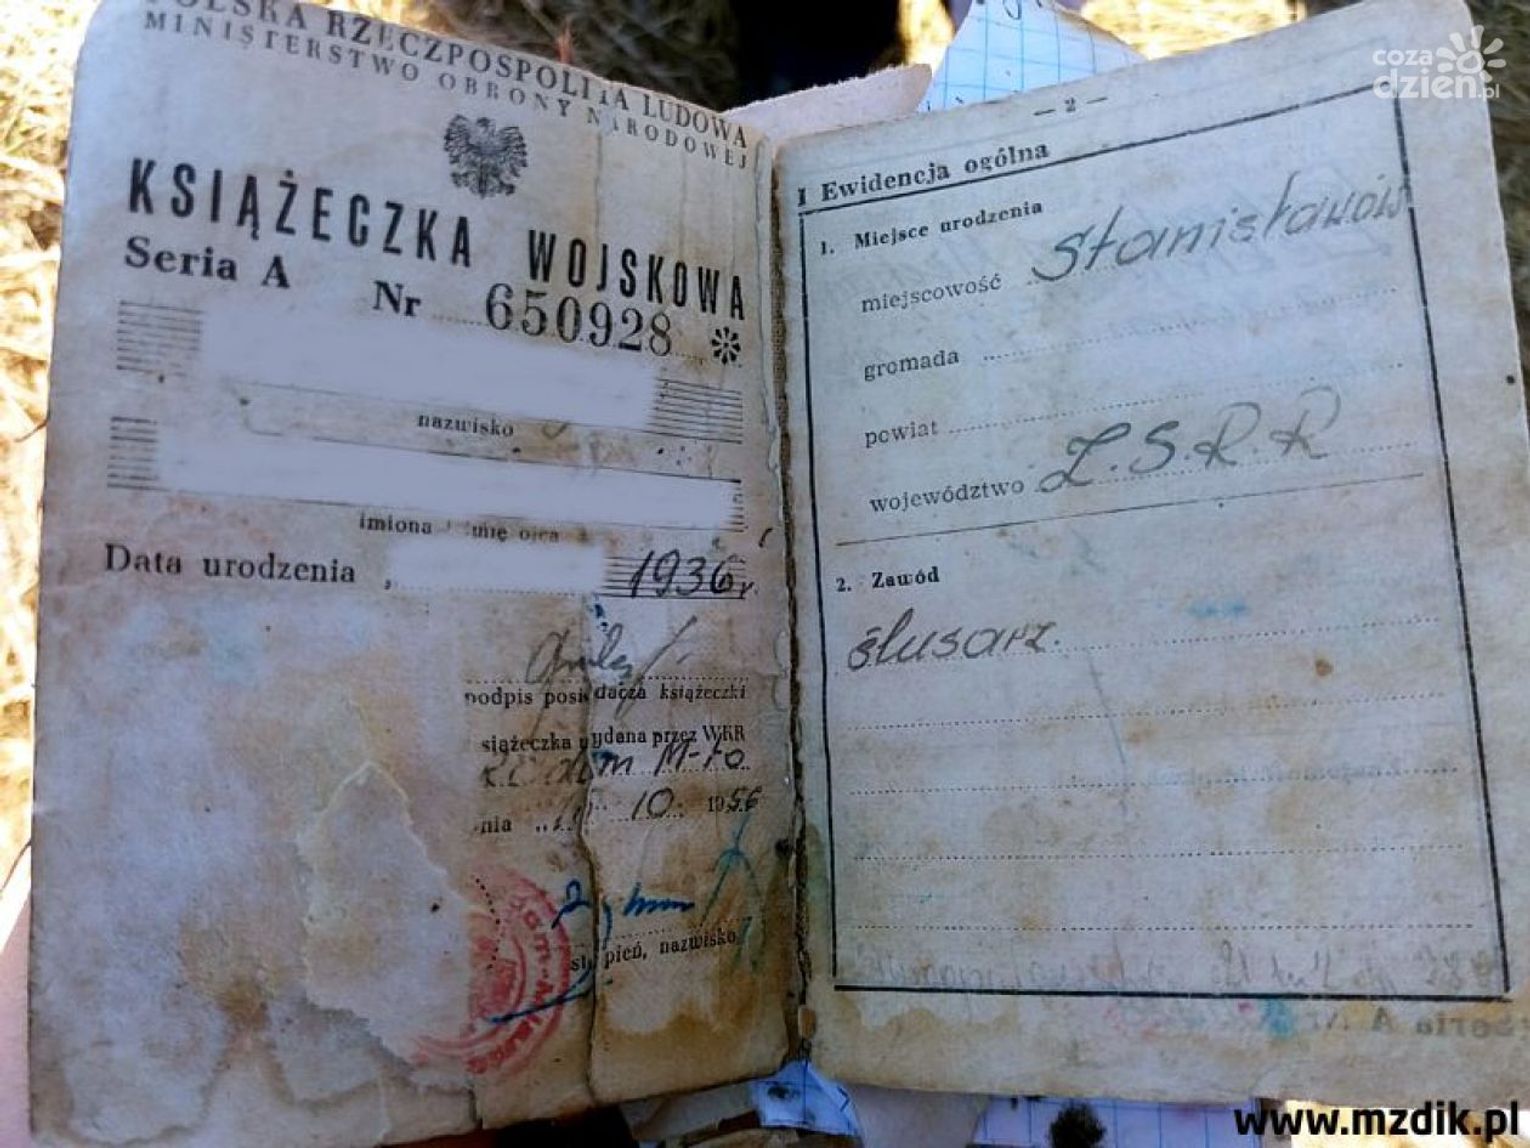 POLSKA RZECZPOSPOLITA LUDOWA
MINISTERSTWO OBRONY NARODOWEJ
KSIĄŻECZKA WOJSKOWA
Seria A Nr 650928
nazwisko
imiona imię ojca
Data urodzenia 1936 r.
podpis posiadacza książeczki
siążeczka wydana przez WKR
Radom M-to
nia 10. 1956
stopień, nazwisko
— 2 —
I Ewidencja ogólna
1. Miejsce urodzenia
miejscowość Stanisławów
gromada
powiat
województwo Z.S.R.R
2. Zawód
ślusarz.
Seria A Nr
coza
dzien.pl
www.mzdik.pl